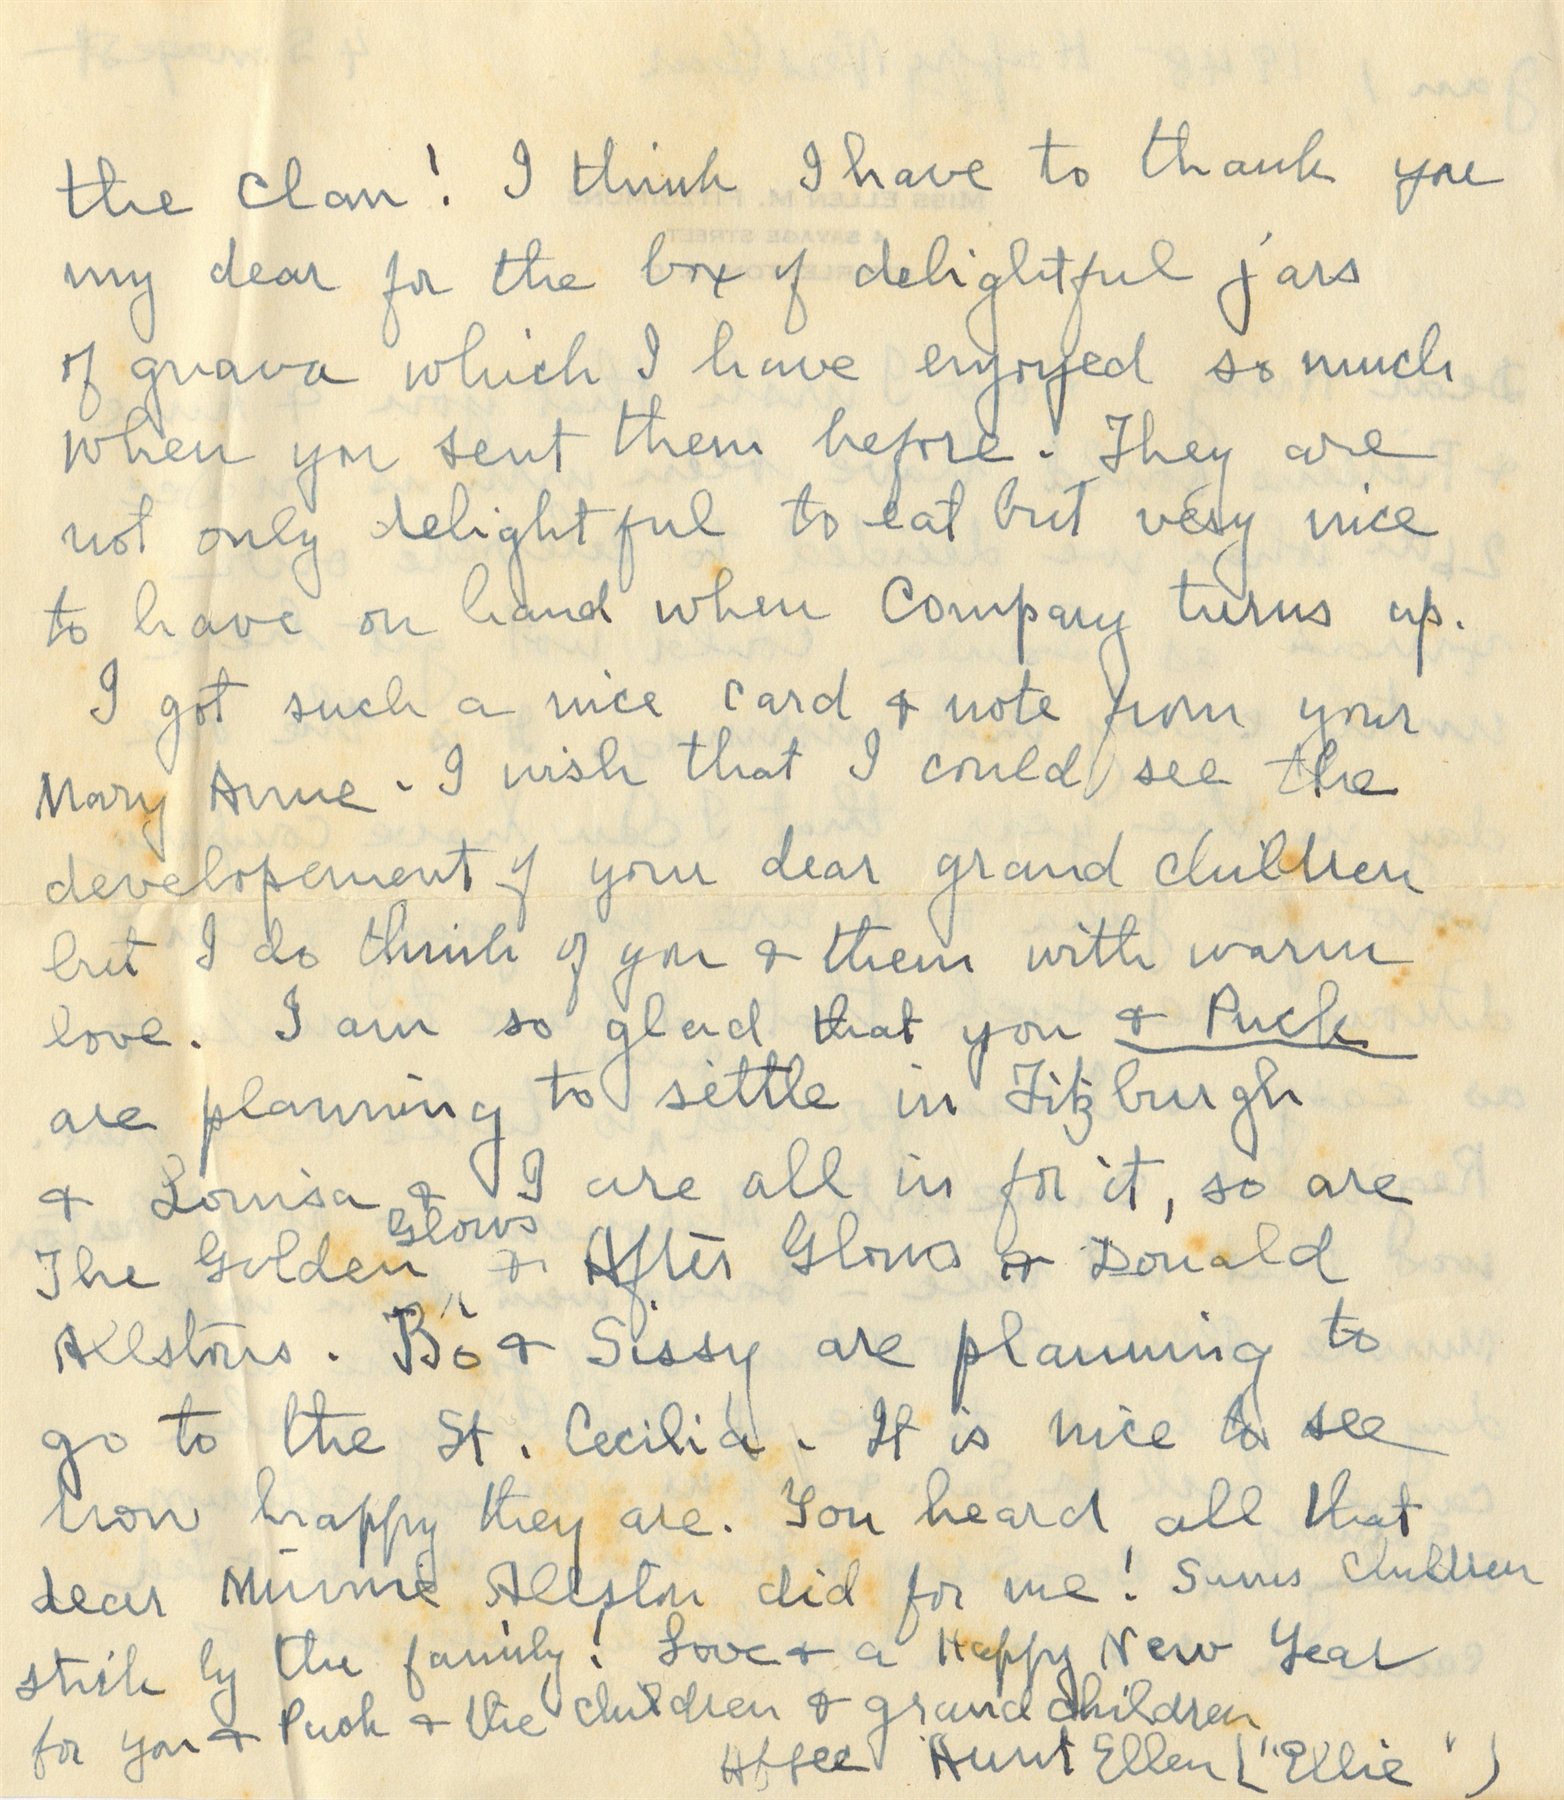 the Clan! I think I have to thank you
my dear for the box of delightful jars
of guava which I have enjoyed so much
when you sent them before. They are
not only delightful to eat but very nice
to have on hand when Company turns up.
I got such a nice card & note from your
Mary Anne. I wish that I could see the
developement of your dear grand children
but I do think of you & them with warm
love. I am so glad that you & Puck
are planning to settle in Fitzburgh
& Louisa & I are all in for it, so are
The Golden Glows & After Glows & Donald
Allstons. Bo & Sissy are planning to
go to the St. Cecilia. It is nice to see
how happy they are. You heard all that
dear Minnie Allston did for me! Sums Children
stick by the family! Love & a Happy New Year
for you & Puck & the children & grand children
Affec Aunt Ellen ("Ellie")
MISS ELLEN M. FITZSIMONS
4 SAVAGE STREET
Jan 1, 1948 Happy New Year